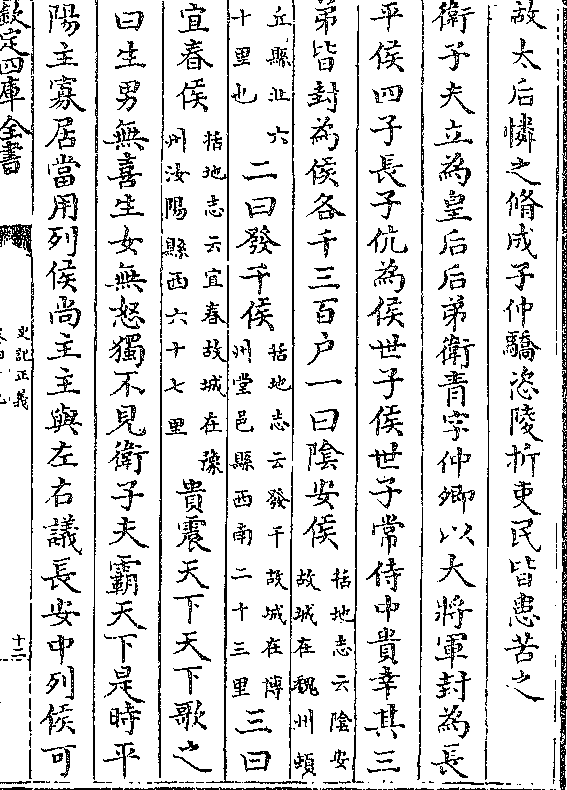 故太后憐之脩成子仲驕恣陵折吏民皆患苦之
衛子夫立為皇后后弟衛青字仲卿以大將軍封為長
平侯四子長子伉為侯世子侯世子常侍中貴幸其三
弟皆封為侯各千三百户一曰陰安侯括地志云陰安故城在魏州頓
丘縣北六十里也二曰發干侯括地志云發干故城在博州堂邑縣西南二十三里三曰
宜春侯括地志云宜春故城在豫州汝陽縣西六十七里貴震天下天下歌之
曰生男無喜生女無怒獨不見衛子夫霸天下是時平
陽主寡居當用列侯尚主主與左右議長安中列侯可
欽定四庫全書
史記正義
十二